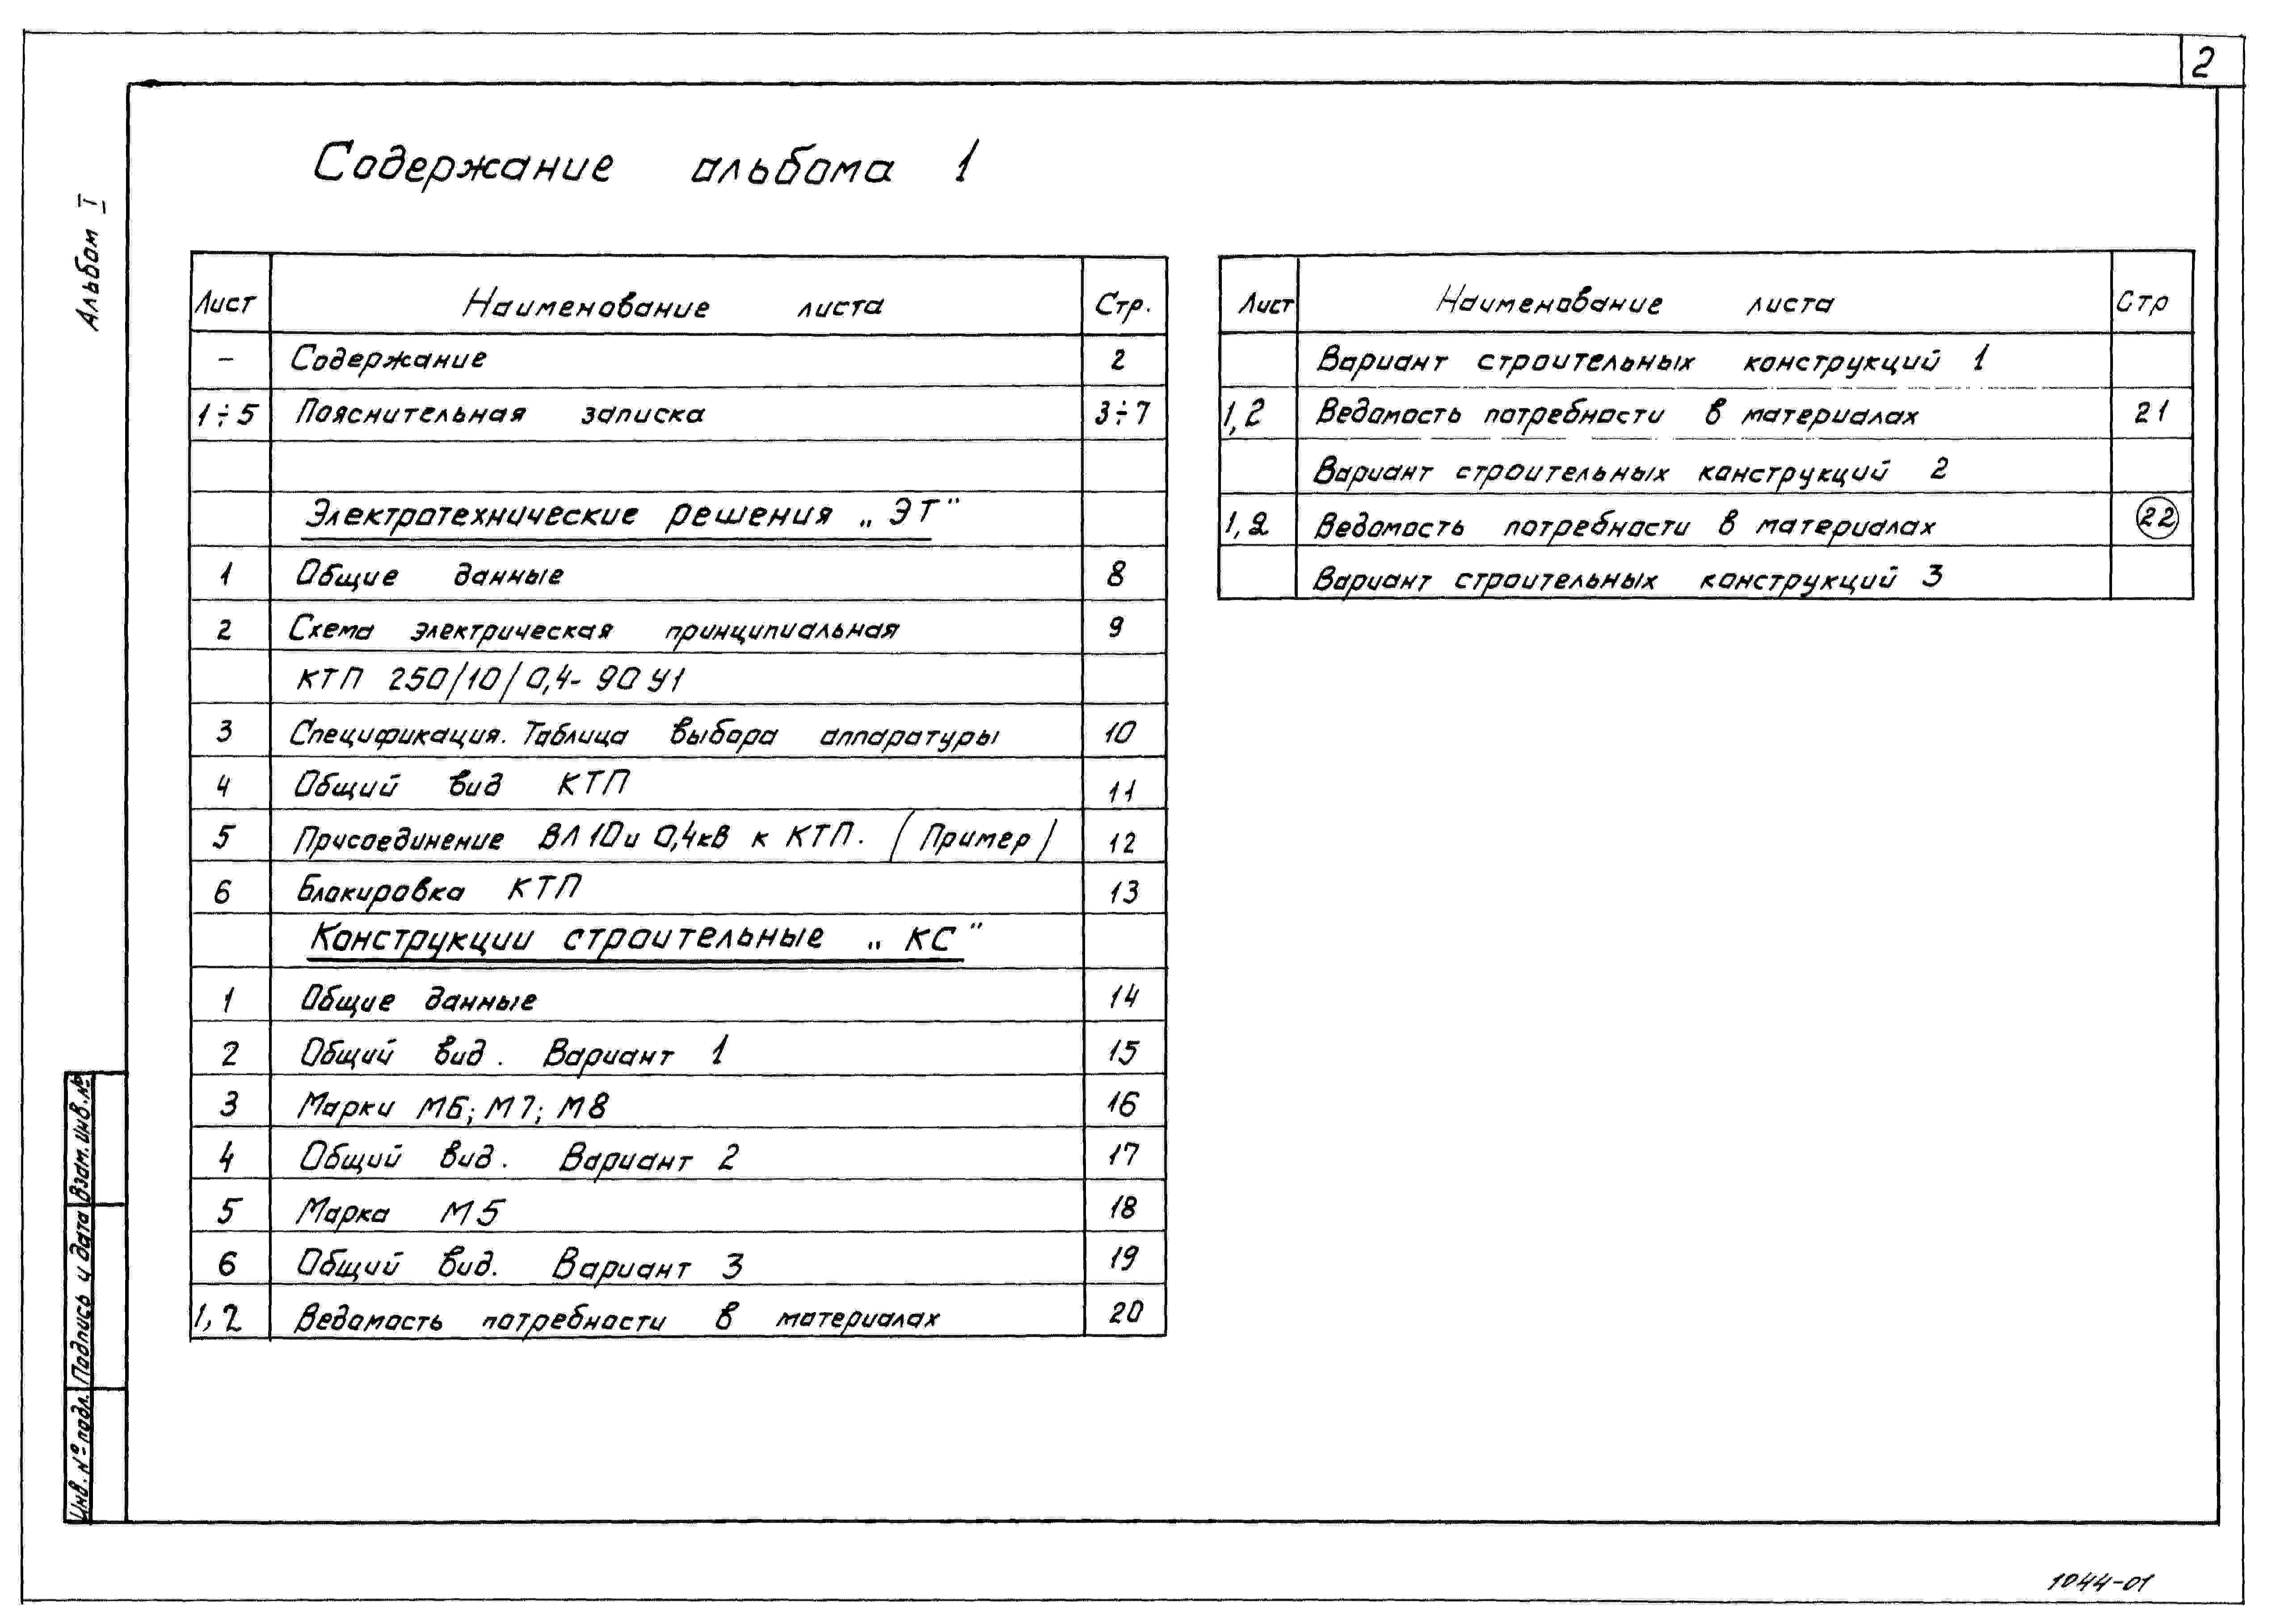 2
Альбом I
Содержание альбома 1
Лист Наименование листа Стр.
– Содержание 2
1÷5 Пояснительная записка 3÷7
Электротехнические решения „ЭТ"
1 Общие данные 8
2 Схема электрическая принципиальная 9
КТП 250/10/0,4-90 У1
3 Спецификация. Таблица выбора аппаратуры 10
4 Общий вид КТП 11
5 Присоединение ВЛ 10 и 0,4кВ к КТП. (Пример) 12
6 Блокировка КТП 13
Конструкции строительные „КС"
1 Общие данные 14
2 Общий вид. Вариант 1 15
3 Марки М6; М7; М8 16
4 Общий вид. Вариант 2 17
5 Марка М5 18
6 Общий вид. Вариант 3 19
1,2 Ведомость потребности в материалах 20
Лист Наименование листа Стр
Вариант строительных конструкций 1
1,2 Ведомость потребности в материалах 21
Вариант строительных конструкций 2
1,2 Ведомость потребности в материалах 22
Вариант строительных конструкций 3
Инв. № подл. Подпись и дата Взам. инв. №
1044-01